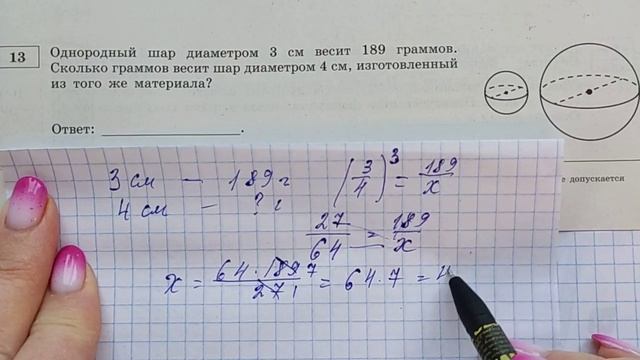 13
Однородный шар диаметром 3 см весит 189 граммов.
Сколько граммов весит шар диаметром 4 см, изготовленный
из того же материала?
Ответ: ____________________.
е допускается
3 см — 189 г
4 см — ? г
(3/4)³ = 189/x
27/64 = 189/x
x = 64 · 189 7 / 27 1 = 64 · 7 = 4